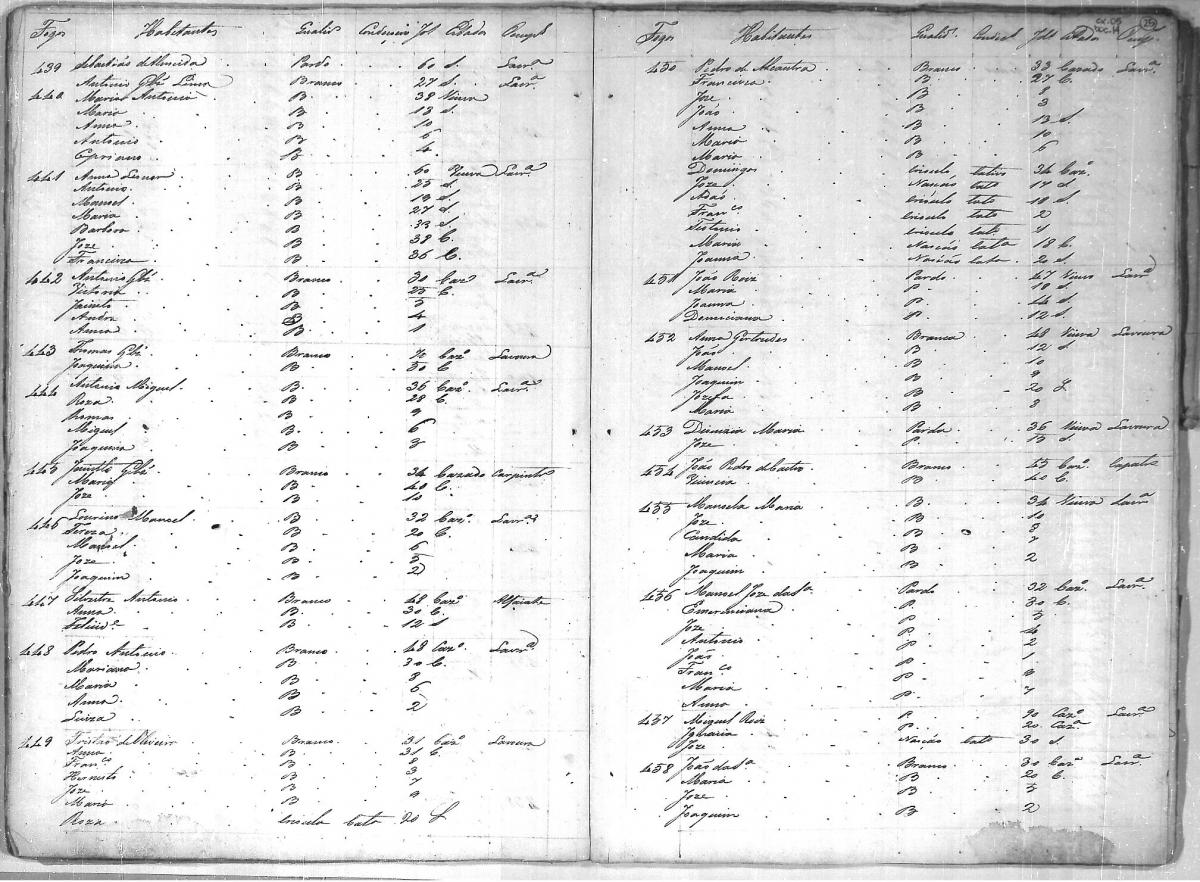 Fogos Habitantes Qualid. Condiçoens Id. Estados Occup.
439 Sebastião de Almeida Pardo 60 S. Lavr.ª
Antonio Glz Lima Branco 27 S. Lavr.ª
440 Maria Antonia B 38 Viuva
Maria B 13 S.
Anna B 10
Antonio B 6
Cipriano B 4
441 Anna B 60 Viuva Lavr.ª
Antonio B 25 S.
Manoel B 19 S.
Maria B 27 S.
Barbora B 33 S.
Joze B 38 C.
Francisca B 36 C.
442 Antonio Glz Branco 30 Caz.º Lavr.ª
Vitoria B 25 C.
Jacinto B 5
Andre B 4
Anna B 1
443 Thomas Glz Branco 70 Caz.º Lavoura
Joaquina B 50 C
444 Antonio Miguel B 36 Caz.º Lavr.ª
Roza B 28 C
Thomas B 9
Miguel B 6
Joaquina B 3
445 Jacintho Glz Branco 34 Cazado Carpintr.º
Maria B 40 C.
Joze B 10
446 Manoel B 32 Caz.º Lavr.ª
Tereza B 20 C.
Manoel B 6
Joze B 5
Joaquim B 2
447 Silvestre Antonio Branco 48 Caz.º Alfaiate
Anna B 30 C.
B 12 S
448 Pedro Antonio Branco 48 Caz.º Lavr.ª
Mariana B 30 C.
Maria B 8
Anna B 6
Luiza B 2
449 Tristão de Oliveira Branco 31 Caz.º Lavoura
Anna B 31 C.
Fran.co B 8
B 3
Joze B 7
Maria B 9
Roza Crioula Cato 20 S
Fogos Habitantes Qualid.e Condiçl Id. Estados Occup.
25
CX.05
DOC.14
450 Pedro de Alcantra Branco 33 Cazado Lavr.ª
Francisca B 27 C.
Joze B 8
João B 3
Anna B 13 S.
Maria B 10
Maria B 6
Domingos Crioulo, Cativo 34 Caz.º
Joze Nassão Cato 17 S
Adão Crioulo Cato 18 S
Fran.co Crioulo Cato 2
Crioulo Cat.º 1
Maria Nassão Cata 18 C.
Joanna Nassão Cata 20 S.
451 João Roiz Pardo 47 Viuvo Lavr.ª
Maria P. 18 S.
Joanna P. 14 S.
P. 12 S
452 Anna Gertrudes Branca 48 Viuva Lavoura
João B 12 S
Manoel B 10
Joaquim B 9
Jozefa B 20 S
Maria B 3
453 Maria Parda 36 Viuva Lavoura
Joze P. 15 S.
454 João Pedro de Castro Branco 45 Caz.º Capatz
B 40 C.
455 Manoela Maria B. 34 Viuva Lavr.ª
Joze B 10
Candida B 8
Maria B 7
Joaquim B 2
456 Manoel Joze da S.ª Pardo 32 Caz.º Lavr.ª
Emerenciana P. 30 C.
Joze P 5
Antonio P 4
João P 2
Fran.co P. 1
Maria P. 9
Anna P. 7
457 Miguel Roiz P. 90 Caz.º Lavr.ª
Ignacia P. 20 Caz.ª
Joze Nassão Cato 30 S.
458 João da S.ª Branco 30 Caz.º Lavr.ª
Maria B 20 C.
Joze B 5
Joaquim B 2